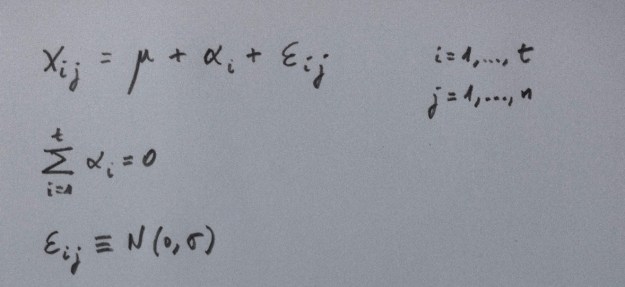 X_{ij} = μ + α_i + ε_{ij}
i = 1, ..., t
j = 1, ..., n
\sum_{i=1}^{t} α_i = 0
ε_{ij} ≡ N(0, σ)